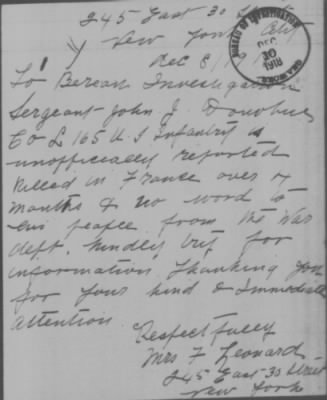 245 East 30 Street
New York City
Dec 8/19
To Bereau Investigation
Sergeant John J. Donohue
Co L 165 U. S Infantry is
unofficially reported
Killed in France over 4
months & no word to
his people from the War
dept. kindly try for
information. Thanking you
for your kind & Immediate
attention
Respectfully
Mrs F Leonard
245 East 30 Street
New York
BUREAU OF INVESTIGATION
DEC